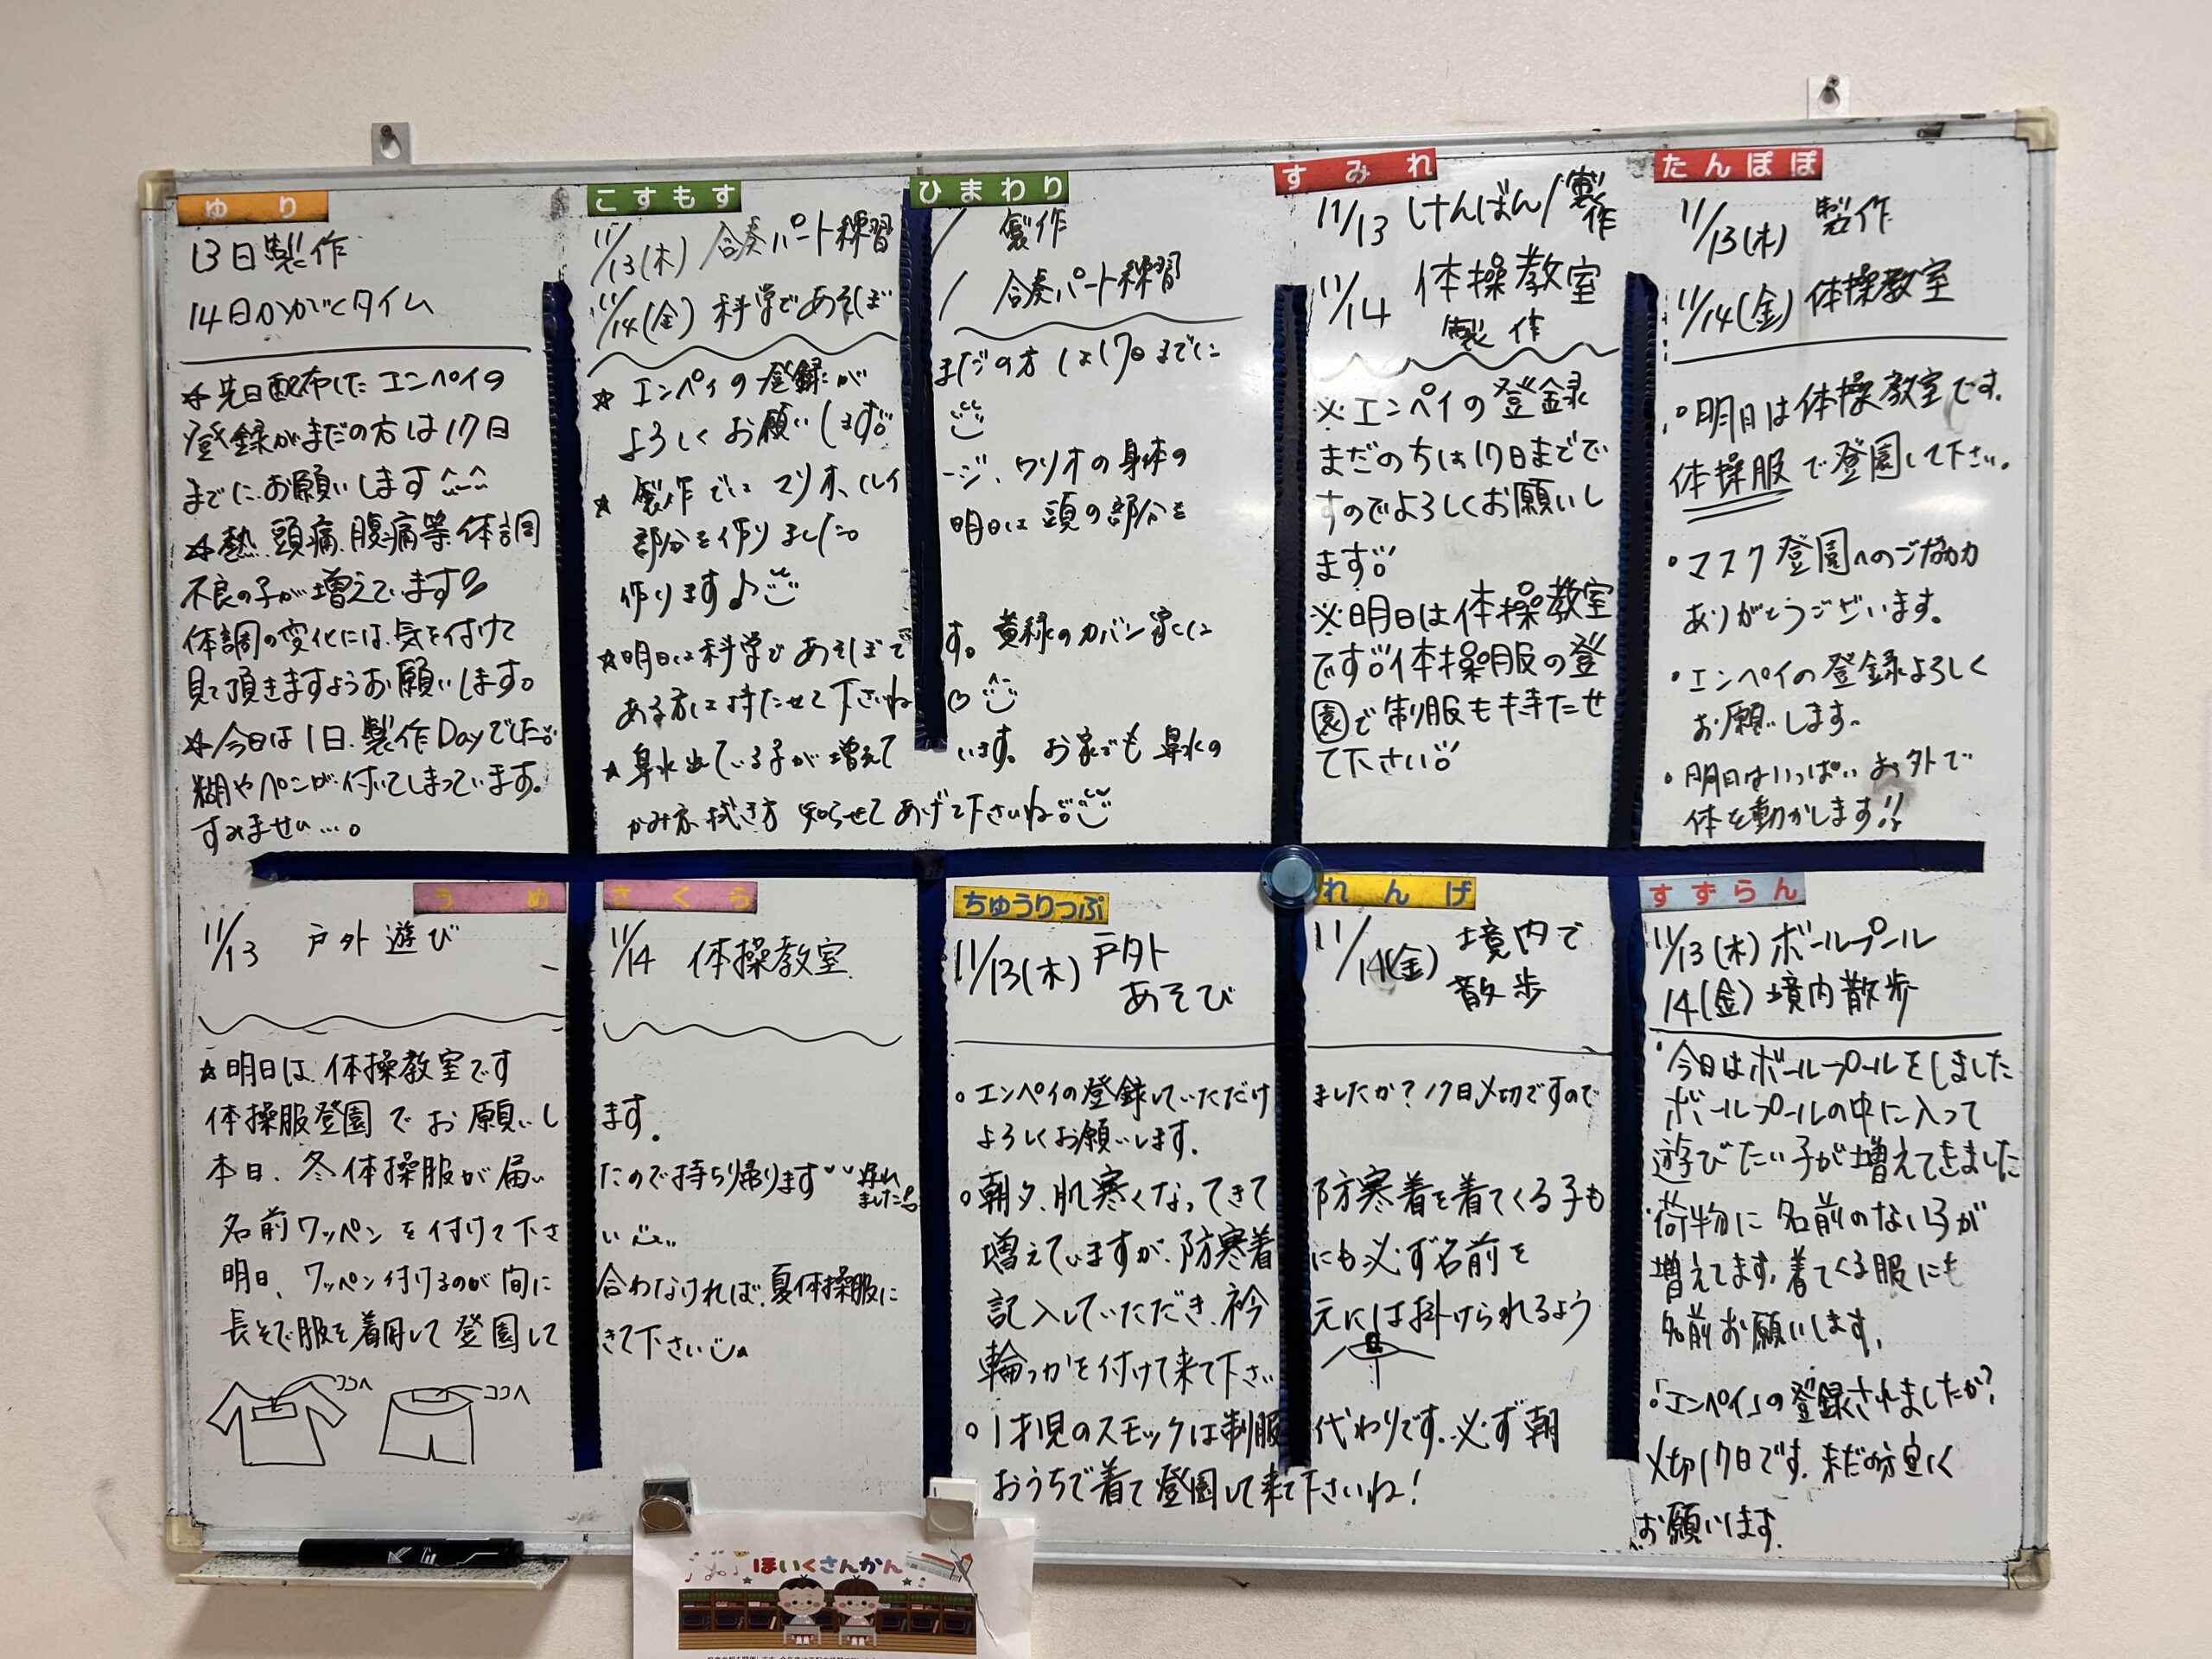 ゆり
13日製作
14日かがくタイム
☆先日配布したエンペイの
登録がまだの方は17日
までにお願いします^^
☆熱、頭痛、腹痛等、体調
不良の子が増えています
体調の変化には、気を付けて
見て頂きますようお願いします。
☆今日は1日、製作Dayでした
糊やペンが付いてしまっています。
すみません…。
こすもす
ひまわり
11/13(木) 合奏パート練習 / 製作
11/14(金) 科学であそぼ / 合奏パート練習
☆ エンペイの登録が まだの方は17日までに
よろしくお願いします。
☆ 製作では マリオ、ルイ ージ、ワリオの身体の
部分を作りました。 明日は頭の部分を
作ります♪
☆明日は科学であそぼで す。黄緑のカバン家に
ある方は持たせて下さいね
☆ 鼻水出ている子が増えて います。お家でも鼻水の
かみ方、拭き方 知らせてあげて下さいね
すみれ
11/13 けんばん/製作
11/14 体操教室
製作
※エンペイの登録
まだの方は17日までで
すのでよろしくお願いし
ます
※明日は体操教室
です 体操服の登
園で制服も持たせ
て下さい
たんぽぽ
11/13(木) 製作
11/14(金) 体操教室
・明日は体操教室です。
体操服で登園して下さい。
・マスク登園へのご協力
ありがとうございます。
・エンペイの登録よろしく
お願いします。
・明日はいっぱいお外で
体を動かします!!
うめ
さくら
11/13 戸外遊び
11/14 体操教室
☆明日は、体操教室です
体操服登園でお願いし ます。
本日、冬体操服が届い たので持ち帰ります
名前ワッペンを付けて下さ い
明日、ワッペン付けるのが間に 合わなければ、夏体操服に
長そで服を着用して登園して きて下さい
ココへ ココへ
ちゅうりっぷ
れんげ
11/13(木) 戸外
あそび
11/14(金) 境内で
散歩
・エンペイの登録していただけ ましたか?17日〆切ですので
よろしくお願いします。
・朝夕、肌寒くなってきて 防寒着を着てくる子も
増えていますが、防寒着 にも必ず名前を
記入していただき、衿 元には掛けられるよう
輪っかを付けて来て下さい
・1才児のスモックは制服 代わりです。必ず朝
おうちで着て登園して来て下さいね!
すずらん
11/13(木) ボールプール
14(金) 境内散歩
・今日はボールプールをしました
ボールプールの中に入って
遊びたい子が増えてきました
・荷物に名前のない子が
増えてます。着てくる服にも
名前お願いします。
・「エンペイ」の登録されましたか?
〆切17日です。まだの方宜しく
お願いします。
ほいくさんかん